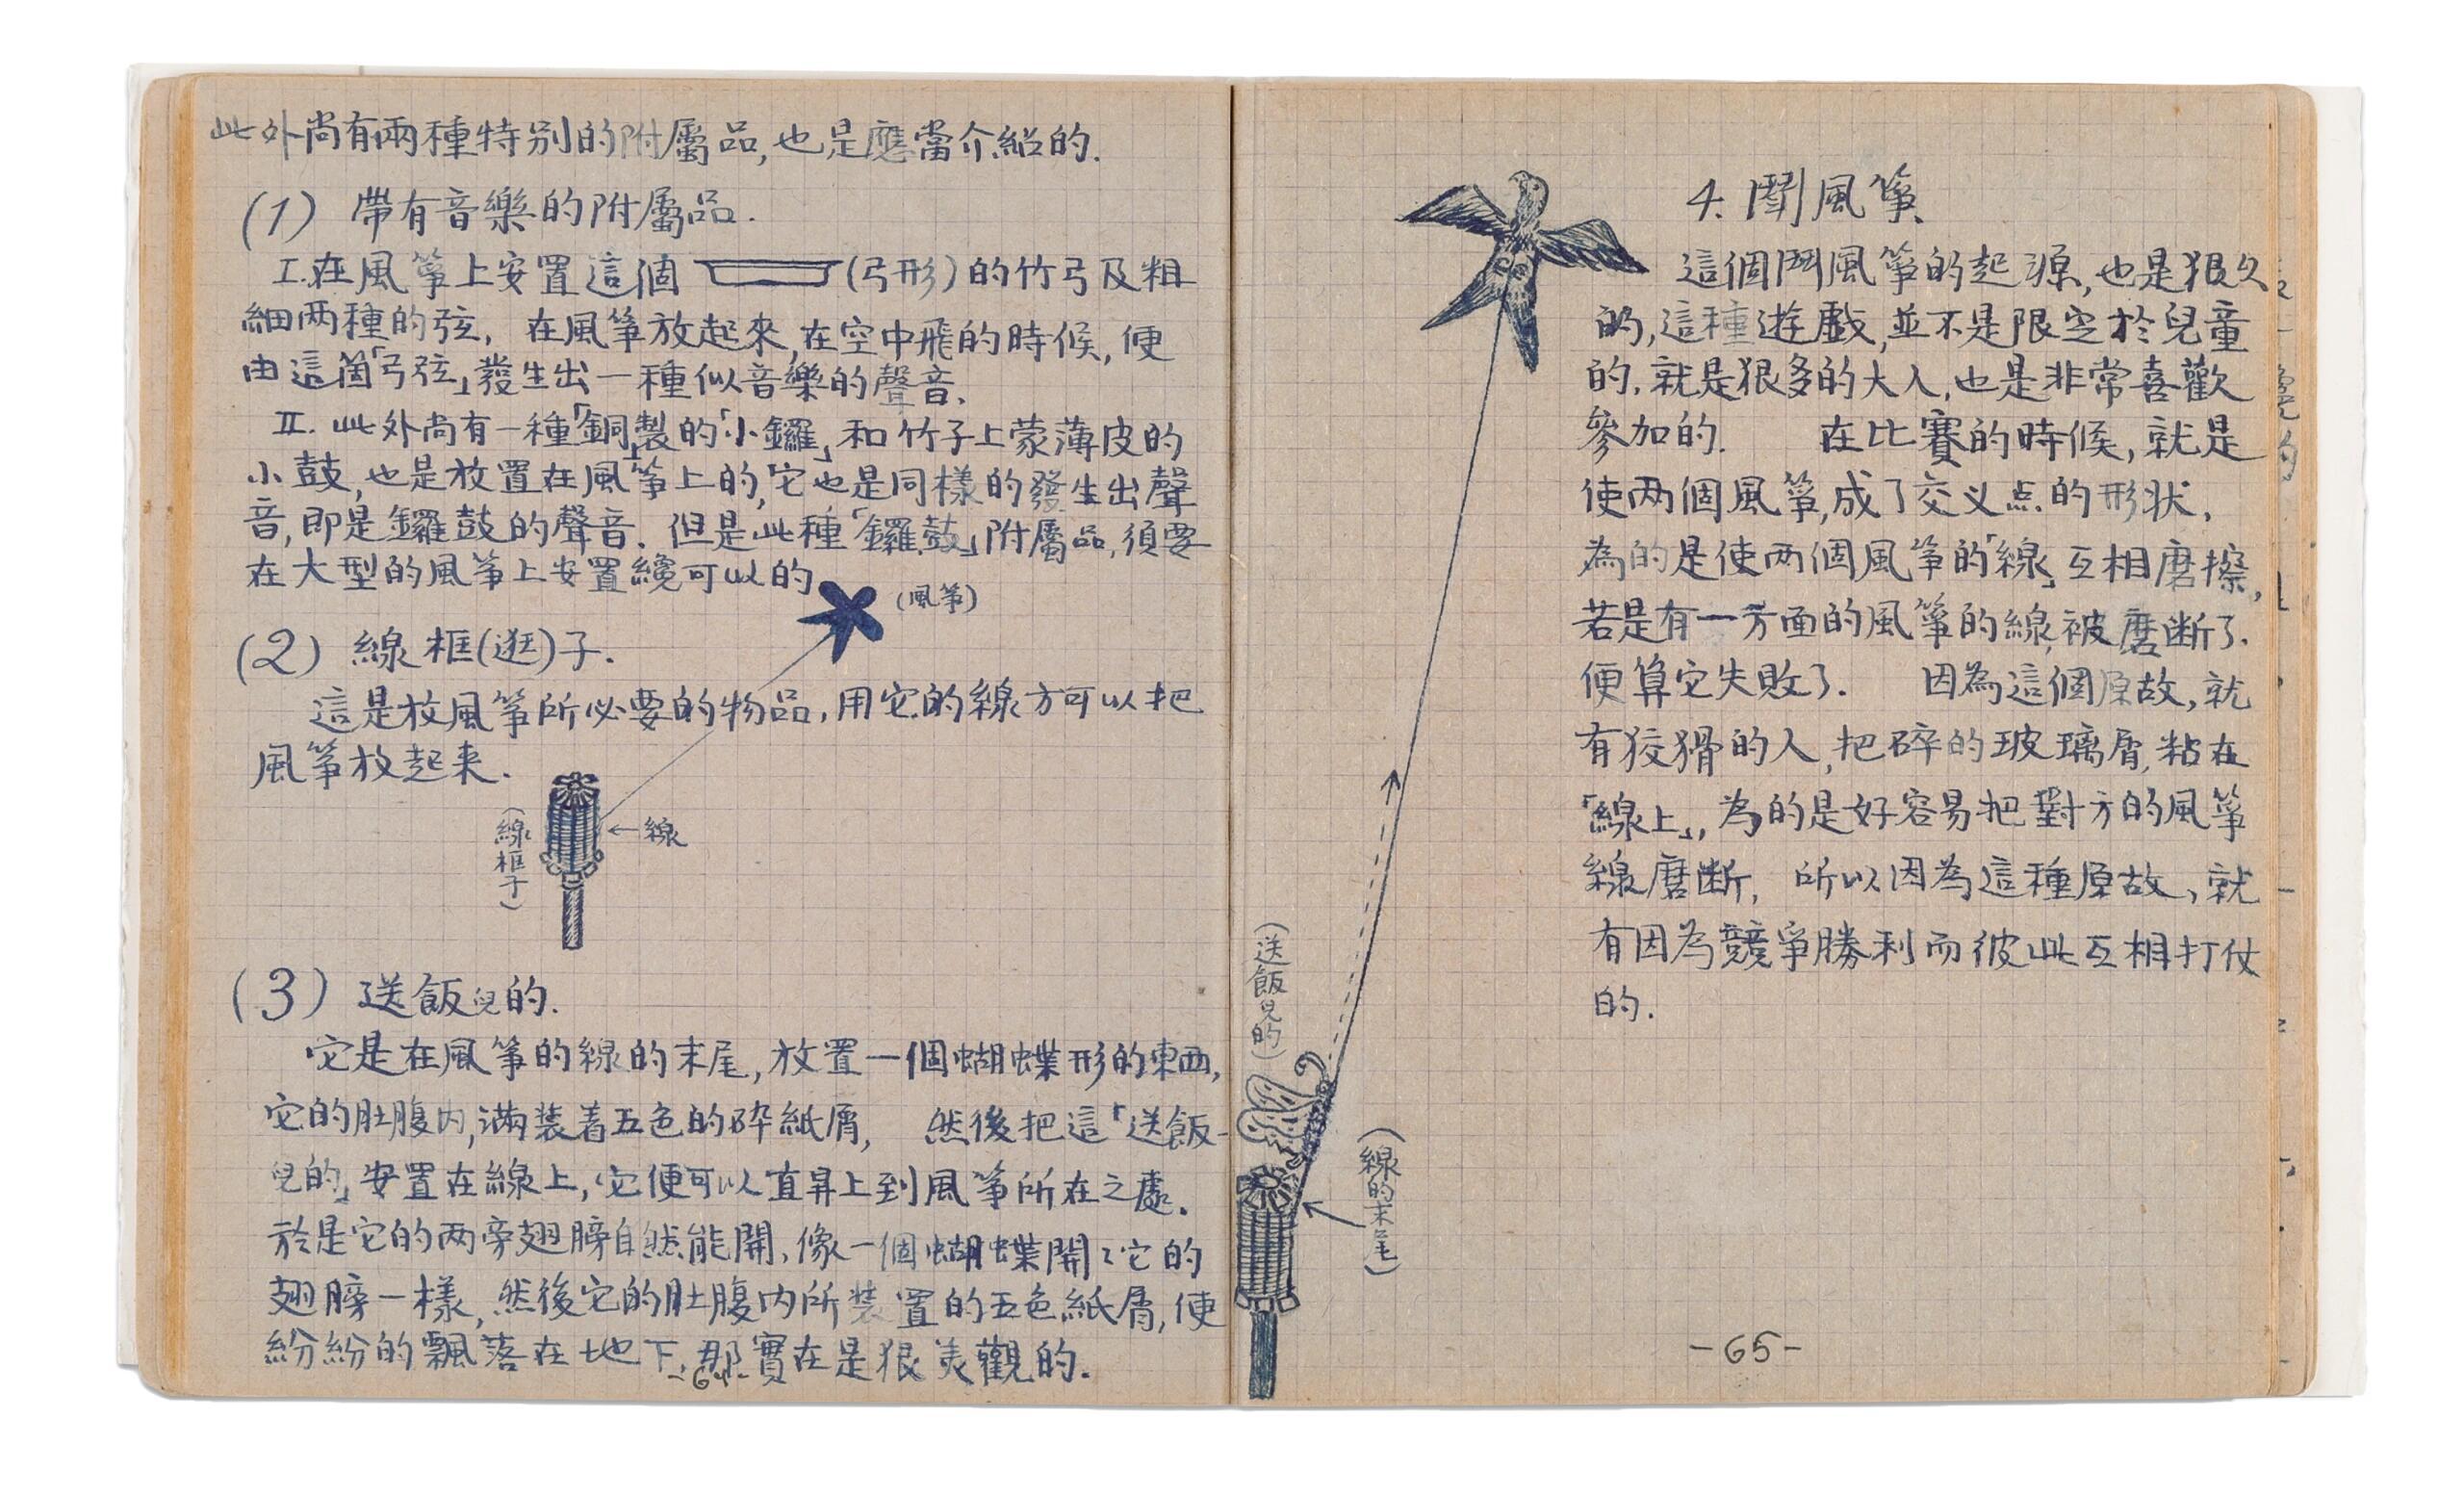 此外尚有兩種特別的附屬品,也是應當介紹的.
(1) 帶有音樂的附屬品.
I.在風箏上安置這個 (弓形)的竹弓及粗
細两種的弦, 在風箏放起來,在空中飛的時候,便
由這箇「弓弦」發生出一種似音樂的聲音.
II. 此外尚有一種「銅」製的「小鑼」和竹子上蒙薄皮的
小鼓,也是放置在風箏上的,它也是同樣的發生出聲
音,即是鑼鼓的聲音. 但是此種「鑼鼓」附屬品,須要
在大型的風箏上安置纔可以的
(風箏)
(2) 線框(逛)子.
這是放風箏所必要的物品,用它的線方可以把
風箏放起来.
(線框子)
←線
(3) 送飯兒的.
它是在風箏的線的末尾,放置一個蝴蝶形的東西,
它的肚腹内,滿装着五色的碎紙屑, 然後把這「送飯-
兒的」安置在線上,它便可以直昇上到風箏所在之處.
於是它的两旁翅膀自然能開,像一個蝴蝶開了它的
翅膀一樣,然後它的肚腹内所装置的五色紙屑,便
紛紛的飄落在地下,那實在是狠美觀的.
-64-
4. 鬪風箏.
這個鬥風箏的起源,也是狠久
的,這種遊戲,並不是限定於兒童
的,就是狠多的大人,也是非常喜歡
參加的. 在比賽的時候,就是
使两個風箏,成了交义点的形状,
為的是使两個風箏的「線」互相磨擦,
若是有一方面的風箏的線,被磨断了.
便算它失敗了. 因為這個原故,就
有狡猾的人,把碎的玻璃屑,粘在
「線上」,為的是好容易把對方的風箏
線磨断, 所以因為這種原故,就
有因為競爭勝利而彼此互相打仗
的.
(送飯兒的)
(線的末尾)
-65-